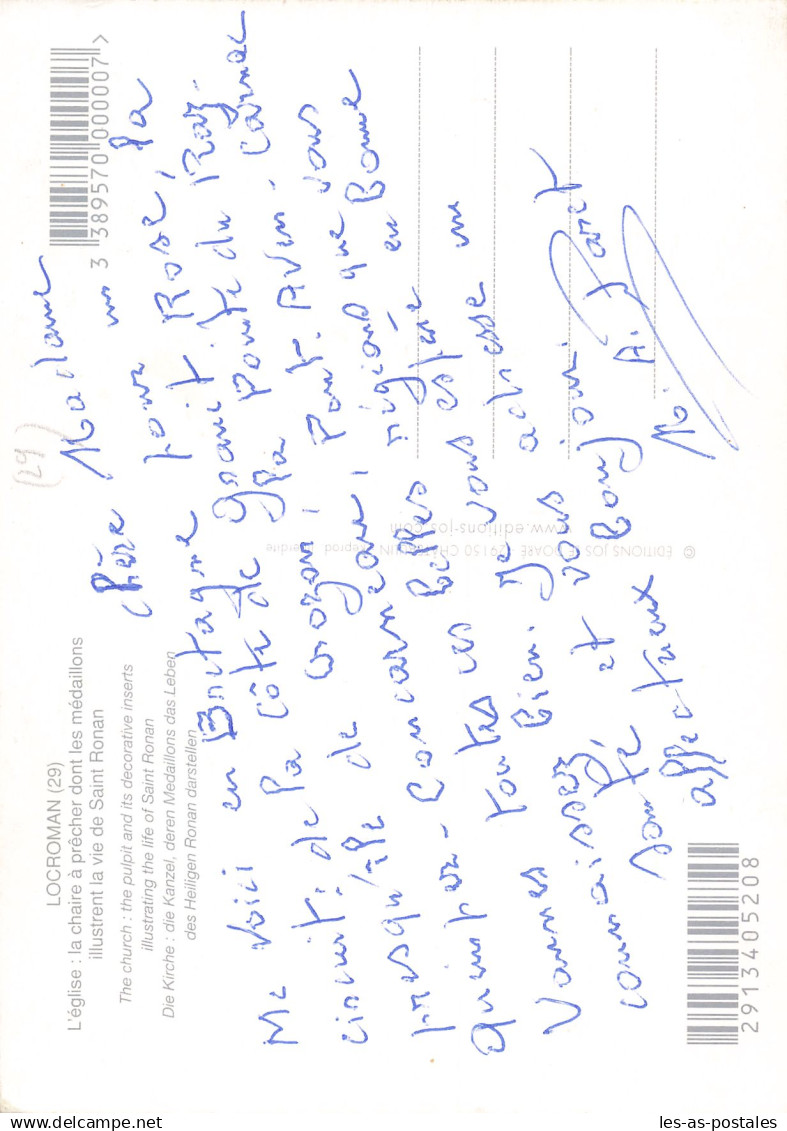 LOCROMAN (29)
L'église : la chaire à prêcher dont les médaillons
illustrent la vie de Saint Ronan
The church : the pulpit and its decorative inserts
illustrating the life of Saint Ronan
Die Kirche : die Kanzel, deren Medaillons das Leben
des Heiligen Ronan darstellen
(29)
3 389570 000007 >
Chère Madame
Me voici en Bretagne pour un
circuit : de la côte de granit Rose, la
presqu'île de crozon, la Pointe du Raz -
quimper - Concarneau, Pont. Aven. Carnac
Vannes toutes ces belles régions que vous
connaissez bien. Je vous espère en Bonne
santé, et vous adresse un
affectueux Bonjour.
M. A.
© EDITIONS JOS LE DOARÉ - 29150 CHÂTEAULIN - Reprod. interdite
www.editions-jos.com
2913405208
les-as-postales